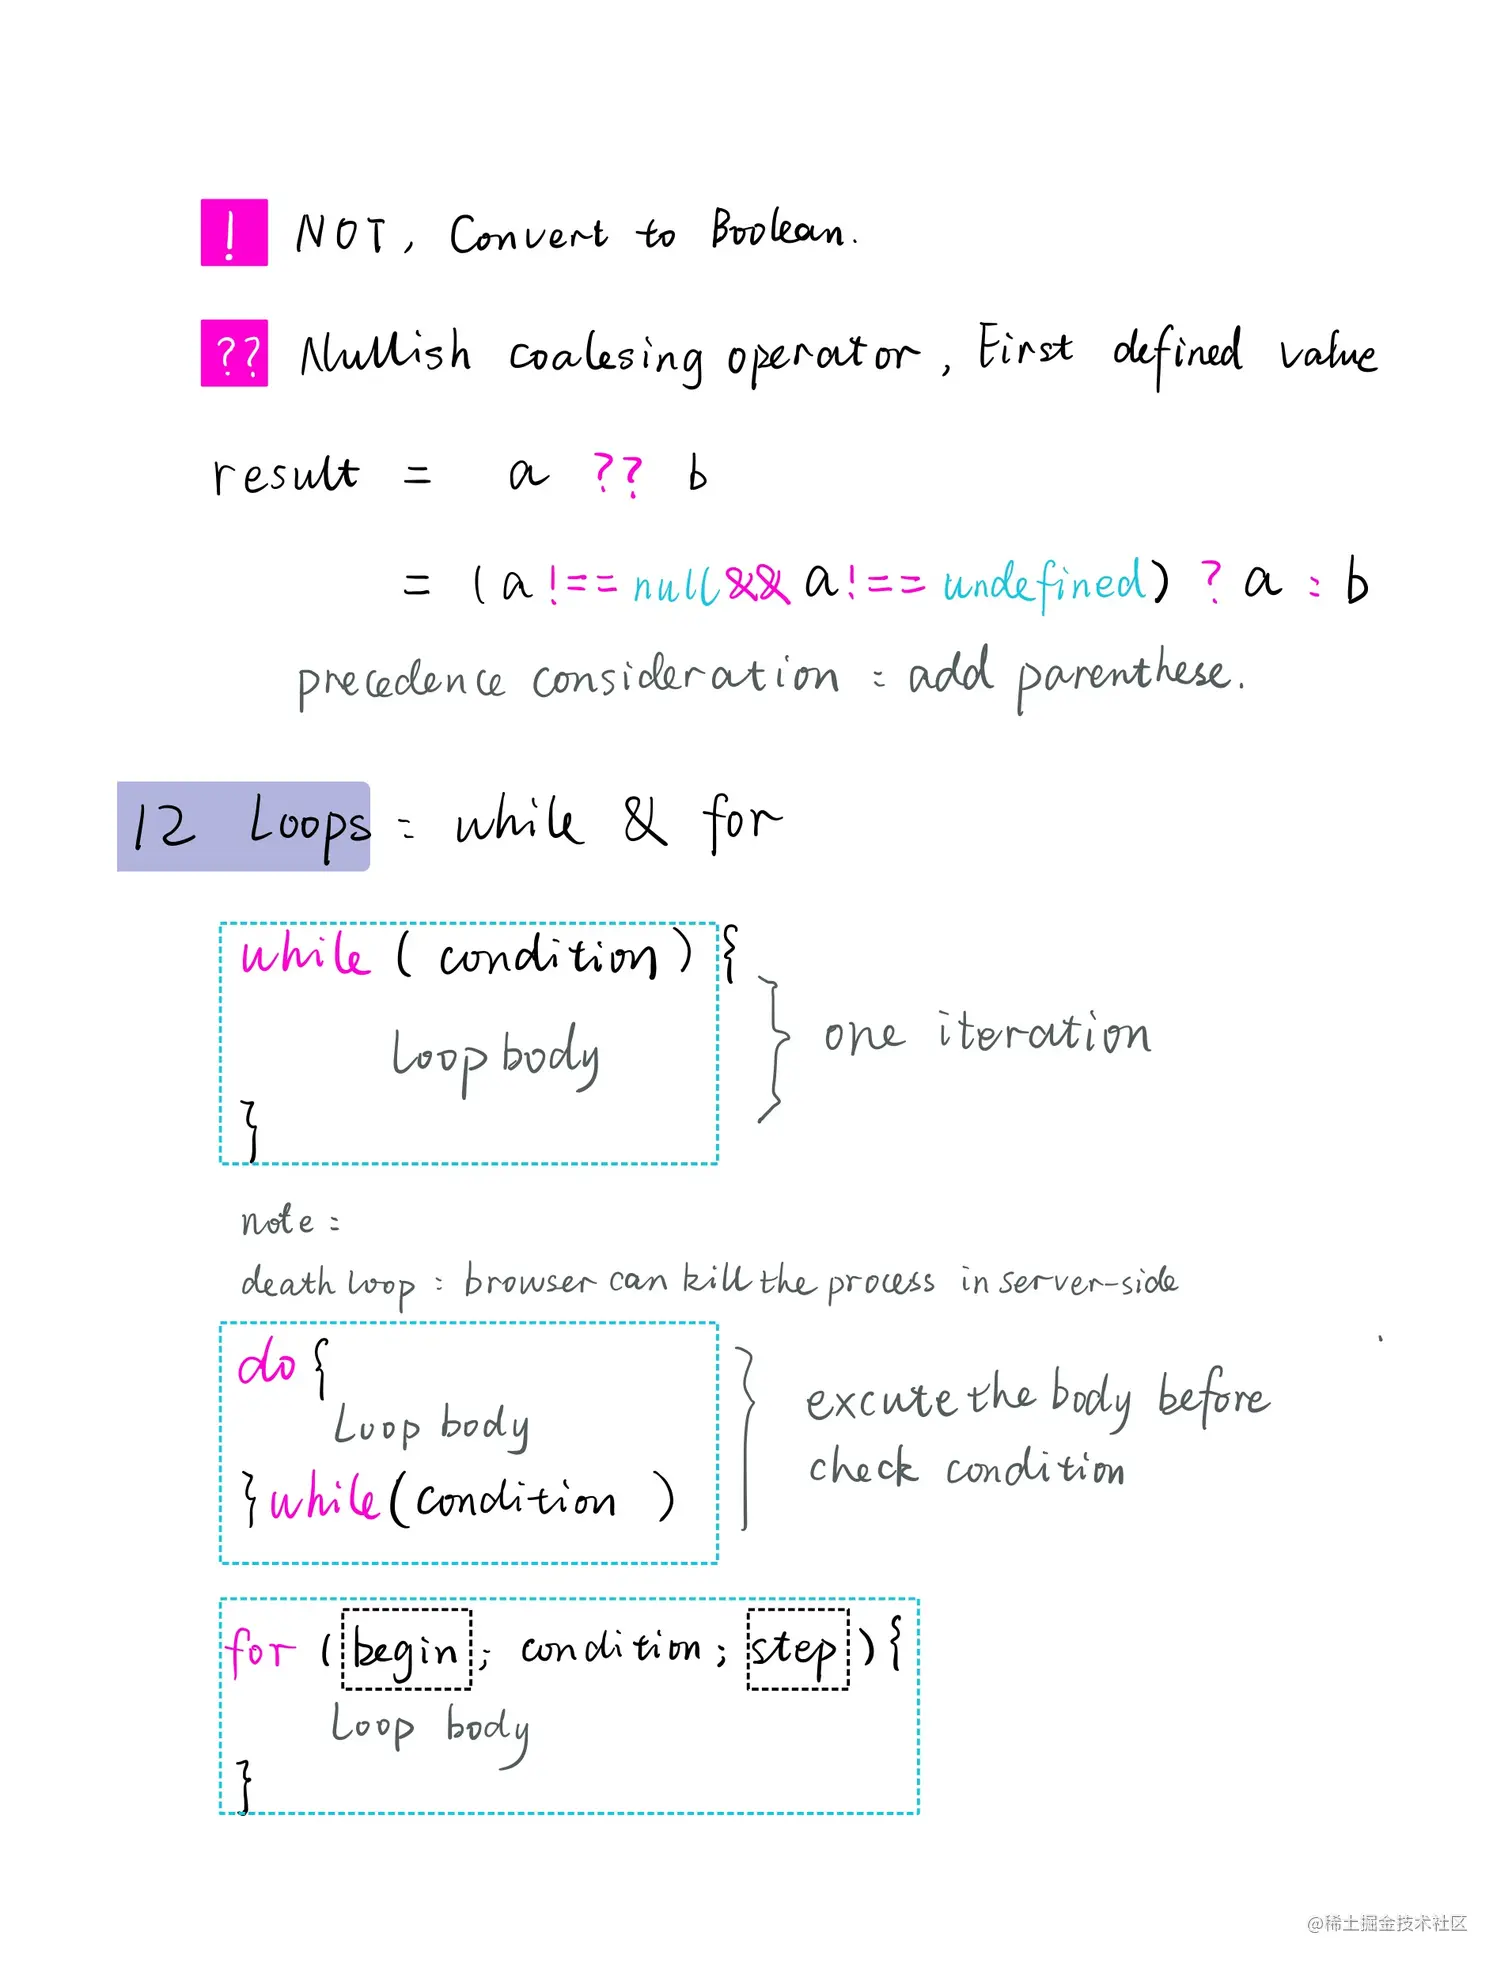 ! NOT, Convert to Boolean.
?? Nullish coalesing operator, First defined value
result = a ?? b
= (a !== null && a !== undefined) ? a : b
precedence consideration : add parenthese.
12 Loops : while & for
while (condition) {
Loop body
}
one iteration
note :
death loop : browser can kill the process in server-side
do {
Loop body
} while (condition )
excute the body before
check condition
for (begin ; condition ; step) {
Loop body
}
@稀土掘金技术社区